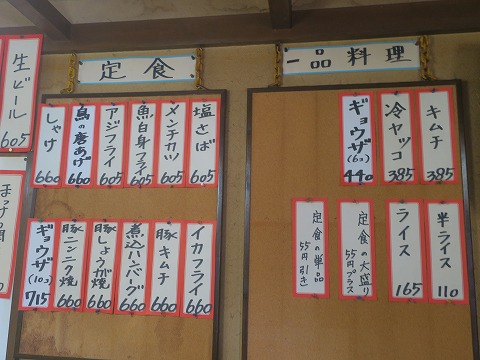 生ビール
605
定食
塩さば
605
メンチカツ
605
魚白身フライ
605
アジフライ
605
鳥の唐あげ
660
しゃけ
660
イカフライ
660
豚キムチ
660
煮込ハンバーグ
660
豚しょうが焼
660
豚ニンニク焼
660
ギョウザ(10コ)
715
一品料理
キムチ
385
冷ヤッコ
385
ギョウザ(6コ)
440
半ライス
110
ライス
165
定食の大盛り
55円プラス
定食の単品
55円引き